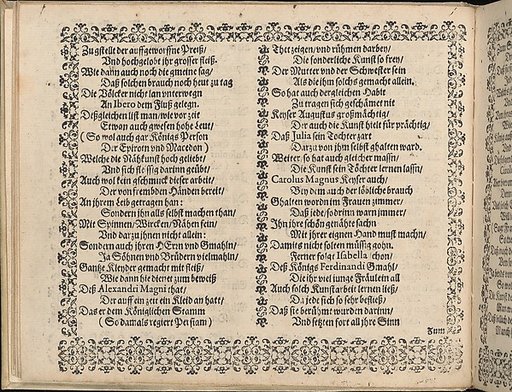 Zu gstelt der auffgeworffne Preiß/
Und hochgelobt ihr grosser fleiß.
Wie dann auch noch die gmeine sag/
Daß solchen brauch noch heut zu tag
Die Völcker nicht lan unterwegn
An Ibero dem Fluß gelegn.
Deßgleichen list man/wie vor zeit
Etwan auch gwesen hohe Leut/
(So wol auch gar Königs Person
Der Epiroten und Macedon)
Welche die Nähkunst hoch geliebt/
Und sich fleissig darinn geübt/
Auch wol kein gschmuck dieser arbeit/
Der von frembden Händen bereit/
An ihrem Leib getragen han:
Sondern ihn alls selbst machen than/
Mit Spinnen/Würcken/Nähen fein/
Und darzu ihnen nicht allein:
Sondern auch ihren HErrn und Gmahln/
Ja Söhnen und Brüdern vielmahln/
Gantze Kleyder gemacht mit fleiß/
Wie dann hie dienet zum beweiß
Deß Alexandri Magni that/
Der auff ein zeit ein Kleid an hatt/
Das er dem Königlichen Stamm
(So damals regiert Persiam)
Thet zeigen/und rühmen darben/
Die sonderliche Kunst so frey/
Der Mutter und der Schwester sein
Als die ihm solchs gemacht allein.
So hat auch dergleichen Habit
Zu tragen sich geschämet nit
Keyser Augustus großmächtig/
Der auch die Kunst hielt für prächtig/
Daß Julia sein Tochter zart
Darzu von ihm selbst ghalten ward.
Weiter so hat auch gleicher massn/
Die Kunst sein Töchter lernen lassn/
Carolus Magnus Keyser auch/
Bey dem auch der löbliche brauch
Ghalten worden im Frauen zimmer/
Daß jede/so drinn warn immer/
Ihn ihre schön genähte sachn
Mit ihrer eignen Hand must machn/
Damits nicht solten müssig gohn.
Ferner folge Isabella schon/
Deß Königs Ferdinandi Gmahl/
Die ihr viel junge Fräulein all
Auch solch Kunstarbeit lernen ließ/
Da jede sich so sehr befließ/
Daß sie berühmt wurden darinn/
Und setzten fort all ihre Sinn
Zum